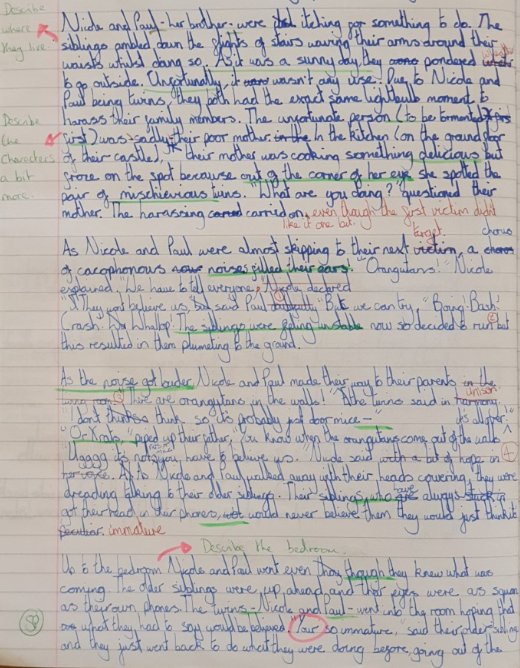 Describe
where
they live.
Nicole and Paul - her brother - were itching for something to do. The
siblings ambled down the flights of stairs waving their arms around their
waists whilst doing so. As it was a sunny day they pondered
to go outside. Unfortunatly, it wasn't any use. Due, to Nicole and
Paul being twins, they both had the exact same lightbulb moment to
harass their family members. The unfortunate person (to be tormented
first) was sadly their poor mother in the kitchen (on the ground floor
of their castle), their mother was cooking something delicious but
froze on the spot because out of the corner of her eye she spotted the
pair of mischievious twins. "What are you doing?" questioned their
mother. The harassing carried on, even though the first victim didn't
like it one bit.
Describe
the
characters
a bit
more.
target.
As Nicole and Paul were almost skipping to their next victim, a chorus
of cacophonous noises filled their ears. "Orangutans!" Nicole
explained "We have to tell everyone," Nicole declared
"They won't believe us, but said Paul But we can try," Boing Bash
Crash Whallop The siblings were going unstable now so decided to run but
this resulted in them plumeting to the ground.
As the noise got louder Nicole and Paul made their way to their parents in the
There are orangutans in the walls!" The twins said in unison
"I don't think so, it's probably just door mice —"
piped up their father, You know when the orangutans come out of the walls
it's not you have to believe us." Nicole said with a bit of hope in
her voice. As Nicole and Paul walked away with their heads covering, they were
dreading talking to their older siblings. Their siblings, who are always stuck in
their head in their phones, would never believe them they would just think it
immature
Describe the bedroom.
Up to the bedroom Nicole and Paul went even though they knew what was
coming. The older siblings were up ahead and their eyes were as square
as their own phones. The twins - Nicole and Paul - went into the room hoping that
what they had to say would be believed. "Your so immature", said their older sibling
and they just went back to do what they were doing before, going out of the